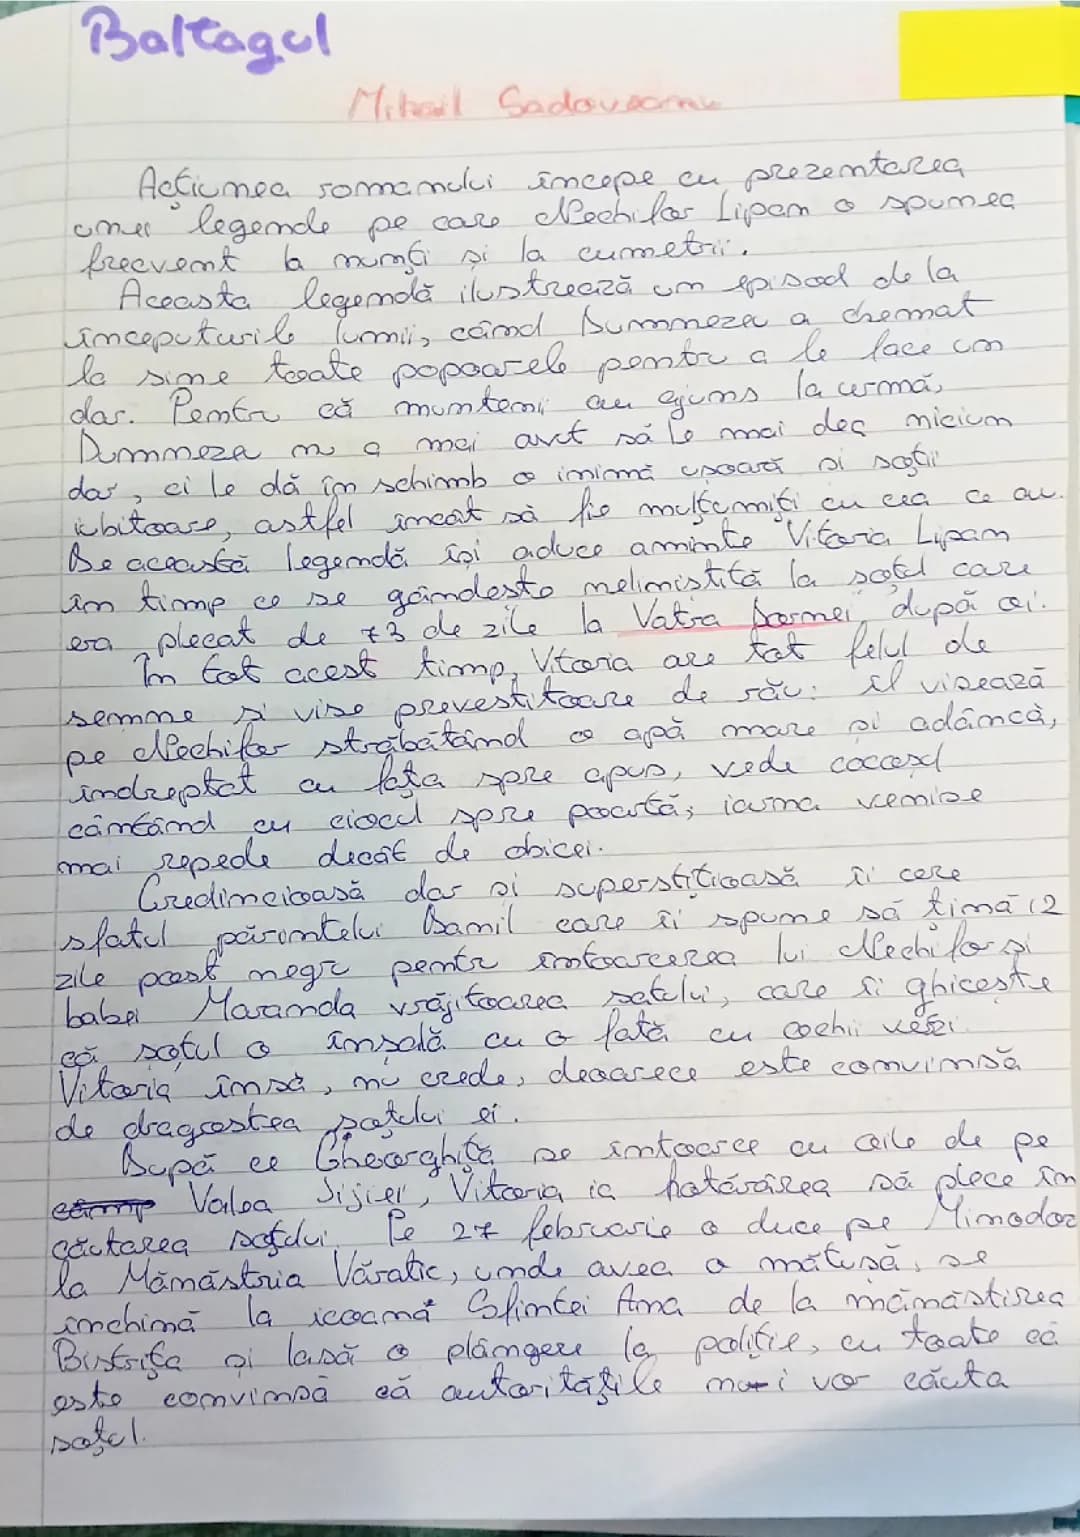 Baltagul
Mihail Sadoveanu
Acțiunea romanului începe cu prezentarea
unei legende pe care Nechifor Lipan o spunea
frecvent la nunți și la cumetrii.
Aceasta legendă ilustrează un episod de la
începuturile lumii, când Dumnezeu a chemat
la sine toate popoarele pentru a le face un
dar. Pentru că muntenii au ajuns la urmă,
Dumnezeu nu a mai avut să le mai dea niciun
dar, ci le dă în schimb o inimă ușoară și soții
iubitoare, astfel încât să fie mulțumiți cu cea ce au.
De această legendă își aduce aminte Vitoria Lipan
în timp ce se gândește neliniștită la soțul care
era plecat de 73 de zile la Vatra Dornei după oi.
În tot acest timp, Vitoria are tot felul de
semne și vise prevestitoare de rău: îl visează
pe Nechifor străbătând o apă mare și adâncă,
indreptat cu fața spre apus, vede cocosul
cântând cu ciocul spre poartă; iarna venise
mai repede decât de obicei.
Credincioasă dar și superstițioasă îi cere
sfatul părintelui Danil care îi spune să țină 12
zile post negru pentru întoarcerea lui Nechifor și
babei Maranda vrăjitoarea satului, care îi ghicește
că soțul o înșală cu o fată cu ochii verzi.
Vitoria însă, nu crede, deoarece este convinsă
de dragostea soțului ei.
După ce Gheorghiță se întoarce cu oile de pe
Valea Jijiei, Vitoria ia hotărârea să plece în
căutarea soțului. Pe 27 februarie o duce pe Minodor
la Mănăstria Văratic, unde avea o mătușă, se
închină la icoana Sfintei Ana de la mănăstirea
Bistrița și lasă o plângere la poliție, cu toate că
este convinsă că autoritățile nu-i vor căuta
soțul.